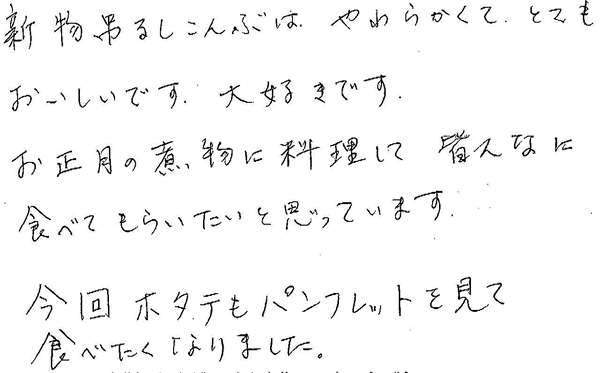 新物吊るしこんぶは、やわらかくて、とても
おいしいです。大好きです。
お正月の煮物に料理して 皆んなに
食べてもらいたいと思っています。
今回ホタテもパンフレットを見て
食べたくなりました。